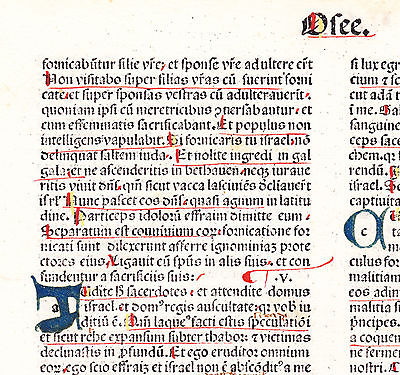 Osee.
fornicabũtur filie vr̃e: et sponse vr̃e adultere er̃t
Non visitabo super filias vr̃as cũ fuerint forni
cate: et super sponsas vestras cũ adulterauerit:
quoniam ipsi cũ meretricibus ꝯuersabantur: et
cum effeminatis sacrificabant. Et populus non
intelligens vapulabit. Si fornicaris tu israel: nõ
delinquat saltem iuda. Et nolite ingredi in gal
gala: et ne ascenderitis in bethauen: neqꝫ iuraue
ritis viuit dñs. qm̃ sicut vacca lasciuiẽs declinauit
isrl̃. Nunc pascet eos dñs: quasi agnum in latitu
dine. Particeps idolorũ effraim dimitte eum.
Separatum est conuiuium eor̃: fornicatione forni
cati sunt dilexerunt afferre ignominiaꝫ protec
tores eius. Ligauit eũ spũs in alis suis: et con
fundentur a sacrificiis suis: C. V.
Audite h̃ sacerdotes: et attendite domus
israel. et dom⁹ regis auscultate: qꝛ vob iu
ditiũ ẽ. Qm̃ laque⁹ facti estis speculatiõi
et sicut rethe expansum super thabor: et victimas
declinastis in ꝓfundũ. Et ego eruditor omnium
eor̃. ego scio effraim et israel non ẽ abscõdit⁹ a me
si lux egr
israel.
captiuita
culus for
malitiam
eos adin
malitia su